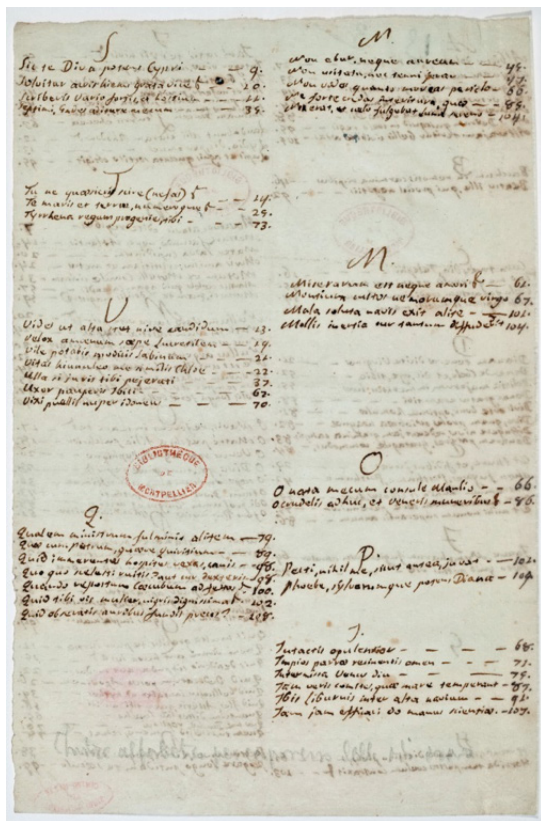 S
Sic te Diva potens Cypri - - 9.
Solvitur acris hiems grata vice - 20.
Scriberis Vario fortis, et hostium
Septimi, Gades aditure mecum - - 35.
T
Tu ne quæsieris scire (nefas) - - 24.
Te maris et terræ, numeroque - - 29.
Tyrrhena regum progenies, tibi - - 73.
U
Vides ut alta stet nive candidum - - 13.
Velox amœnum sæpe Lucretilem - - 19.
Vile potabis modicis Sabinum - - 21.
Vitas hinnuleo me similis Chloe - - 22.
Ulla si juris tibi pejerati - - 37.
Uxor pauperis Ibici - - 67.
Vixi puellis nuper idoneus - - 70.
BIBLIOTHÈQUE
DE
MONTPELLIER
Q.
Qualem ministrum fulminis alitem - 79.
Quid immerentes hospites vexas, canis - 98.
Quo quo scelesti ruitis? aut cur dexteris 98.
Quando repostum Cæcubum ad festas 100.
Quid tibi vis mulier, nigris dignissima 102.
Quid obseratis auribus fundis preces? - 108.
N.
Non ebur, neque aureum - - 48.
Non usitata, nec tenui ferar - - 47.
Non vides quanto moveas periclo - 66.
Ne forte credas interitura, quæ - - 85.
Nox erat, et cælo fulgebat luna sereno - 104.
M.
Miserarum est neque amori - - 62.
Montium custos nemorumque virgo 67.
Mala soluta navis exit alite - - 102.
Mollis inertia cur tantam diffuderit 104.
O
O nata mecum consule Manlio - - 66.
O crudelis adhuc, et Veneris muneribus - 86.
P.
Petti, nihil me, sicut antea, juvat - - 102.
Phoebe, sylvarumque potens Diana - 109.
I.
Intactis opulentior - - 68.
Impios parræ recinentis omen - - 71.
Intermissa Venus diu - - 79.
Jam veris comites, quæ mare temperant - 87.
Ibis Liburnis inter alta navium - - 92.
Jam jam efficaci do manus scientiæ. - 107.